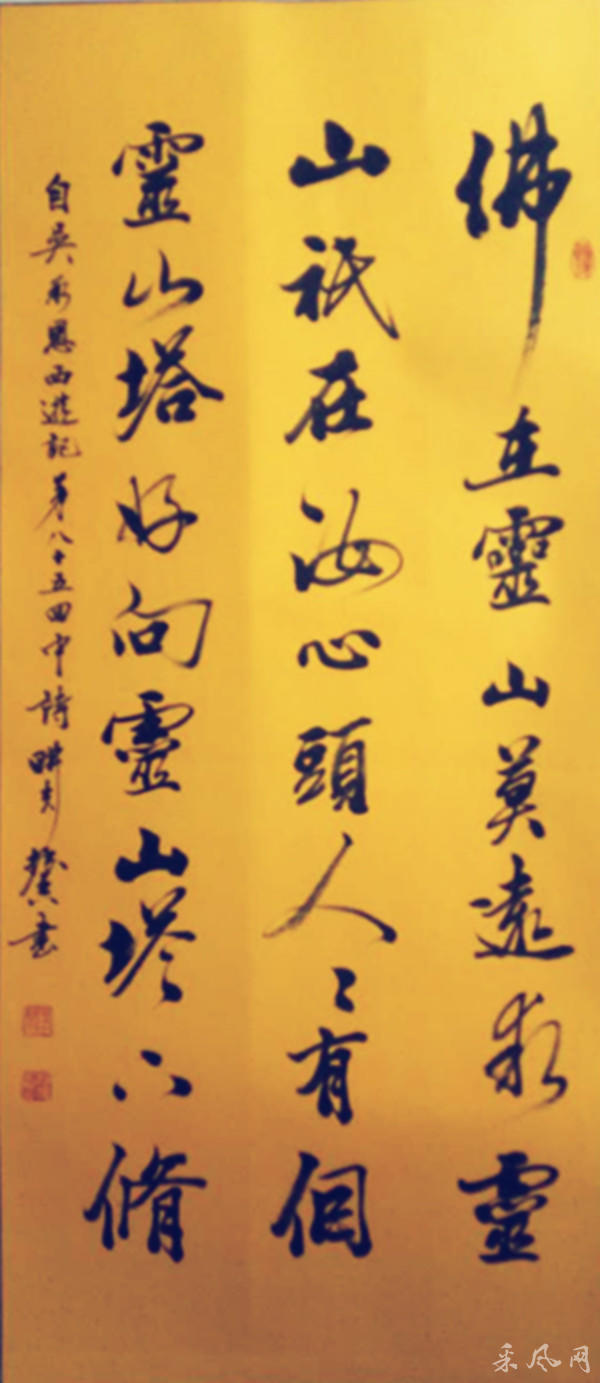 佛在靈山莫遠求靈
山祇在汝心頭人〻有個
靈山塔好向靈山塔下脩
自吳承恩西遊記第八十五回中詩
書
采风网